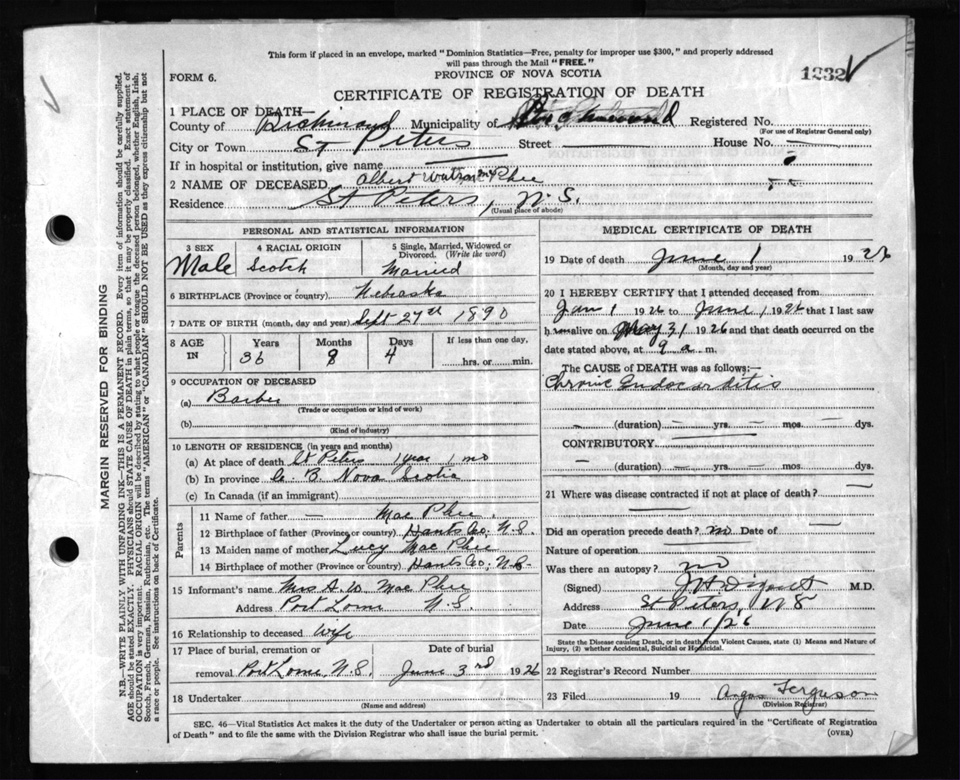 This form if placed in an envelope, marked "Dominion Statistics—Free, penalty for improper use $300," and properly addressed
will pass through the Mail "FREE."
FORM 6.
PROVINCE OF NOVA SCOTIA
1232
CERTIFICATE OF REGISTRATION OF DEATH
1 PLACE OF DEATH—
County of Richmond Municipality of Richmond Registered No.
(For use of Registrar General only)
City or Town St Peters Street House No.
If in hospital or institution, give name
2 NAME OF DECEASED Albert Watson McPhee
Residence St Peters, N.S.
(Usual place of abode)
PERSONAL AND STATISTICAL INFORMATION
3 SEX 4 RACIAL ORIGIN 5 Single, Married, Widowed or Divorced. (Write the word)
Male Scotch Married
6 BIRTHPLACE (Province or country) Nebraska
7 DATE OF BIRTH (month, day and year) Sept 27th 1890
8 AGE IN Years Months Days If less than one day,
36 8 4 hrs. or min.
9 OCCUPATION OF DECEASED
(a) Barber
(Trade or occupation or kind of work)
(b)
(Kind of industry)
10 LENGTH OF RESIDENCE (in years and months)
(a) At place of death St Peters 1 year 1 mo
(b) In province C. B. Nova Scotia
(c) In Canada (if an immigrant)
Parents
11 Name of father — Mac Phee
12 Birthplace of father (Province or country) Hants Co, N.S.
13 Maiden name of mother Lucy Mac Phee
14 Birthplace of mother (Province or country) Hants Co; N.S.
15 Informant's name Mrs A. W. Mac Phee
Address Port Lorne N.S.
16 Relationship to deceased Wife
17 Place of burial, cremation or Date of burial
removal Port Lorne N.S. June 3rd 1926
18 Undertaker
(Name and address)
MEDICAL CERTIFICATE OF DEATH
19 Date of death June 1 1926
(Month, day and year)
20 I HEREBY CERTIFY that I attended deceased from
Jan 1 1926 to June 1, 1926 that I last saw
him alive on May 31 1926 and that death occurred on the
date stated above, at 9 a. m.
The CAUSE of DEATH was as follows:—
Chronic Endocarditis
(duration) yrs. mos. dys.
CONTRIBUTORY
(duration) yrs. mos. dys.
21 Where was disease contracted if not at place of death?
Did an operation precede death? no Date of
Nature of operation
Was there an autopsy? no
(Signed) M.D.
Address St Peters, N S
Date June 1/26
State the Disease causing Death, or in death from Violent Causes, state (1) Means and Nature of
Injury, (2) whether Accidental, Suicidal or Homicidal.
22 Registrar's Record Number
23 Filed 19 Angus Ferguson
(Division Registrar)
SEC. 46—Vital Statistics Act makes it the duty of the Undertaker or person acting as Undertaker to obtain all the particulars required in the "Certificate of Registration
of Death" and to file the same with the Division Registrar who shall issue the burial permit.
(OVER)
MARGIN RESERVED FOR BINDING
N.B.—WRITE PLAINLY WITH UNFADING INK—THIS IS A PERMANENT RECORD. Every item of information should be carefully supplied.
AGE should be stated EXACTLY. PHYSICIANS should STATE CAUSE OF DEATH in plain terms, so that it may be properly classified. Exact statement of
OCCUPATION is very important. RACIAL ORIGIN will be described by stating to what people or tongue the deceased person belonged, whether English, Irish,
Scotch, French, German, Russian, Ruthenian, etc. The terms "AMERICAN" or "CANADIAN" SHOULD NOT BE USED as they express citizenship but not
a race or people. See instructions on back of Certificate.